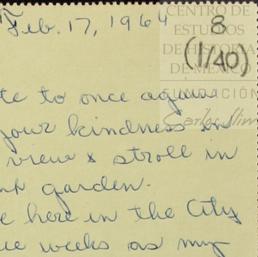 Feb. 17, 1964
8
(1/40)
CENTRO DE
ESTUDIOS
DE HISTORIA
DE MÉXICO
FUNDACIÓN
Carlos Slim
te to once again
your kindness in
view & stroll in
garden.
e here in the City
ee weeks as my